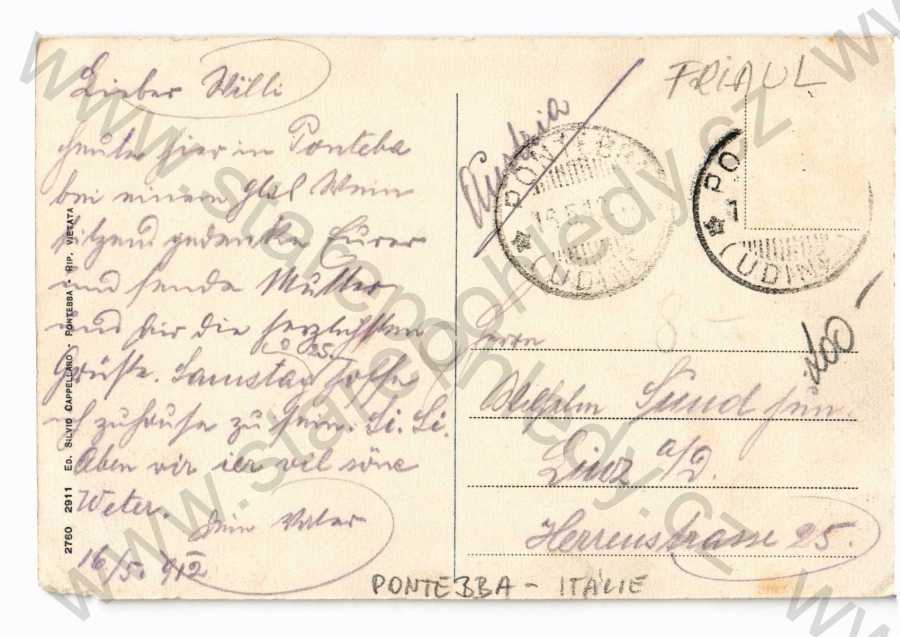 Lieber Willi
heute hier in Ponteba
bei einem Glas Wein
sitzend gedenke Eurer
und sende Mutter
und dir die herzlichsten
Grüße. Samstag hoffe
d 25.
ich zuhause zu sein. Li. Li.
Aben wir ier vil söne
Weter.
Dein Vater
16/5. 912
2760 2911 Ed. SILVIO CAPPELLARO - PONTEBBA - RIP. VIETATA
Austria
PONTEBBA
(UDINE)
FRIAUL
PO
(UDINE
800-
400-
Herrn
Wilhelm jun.
Linz a/D.
Herrenstrasse 25.
PONTEBBA - ITALIE
www.starepohledy.cz
www.starepohledy.cz